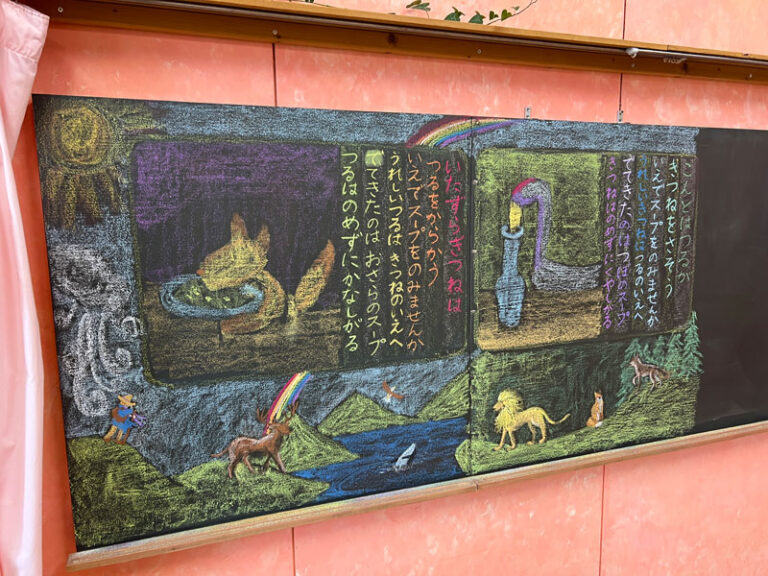 いたずらきつねは
つるをからかう
いえでスープをのみませんか
うれしいつるは きつねのいえへ
でてきたのは おざらのスープ
つるはのめずにかなしがる
こんどはつるが
きつねをさそう
いえでスープをのみませんか
うれしいきつねは つるのいえへ
でてきたのはつぼのスープ
きつねはのめずにくやしがる